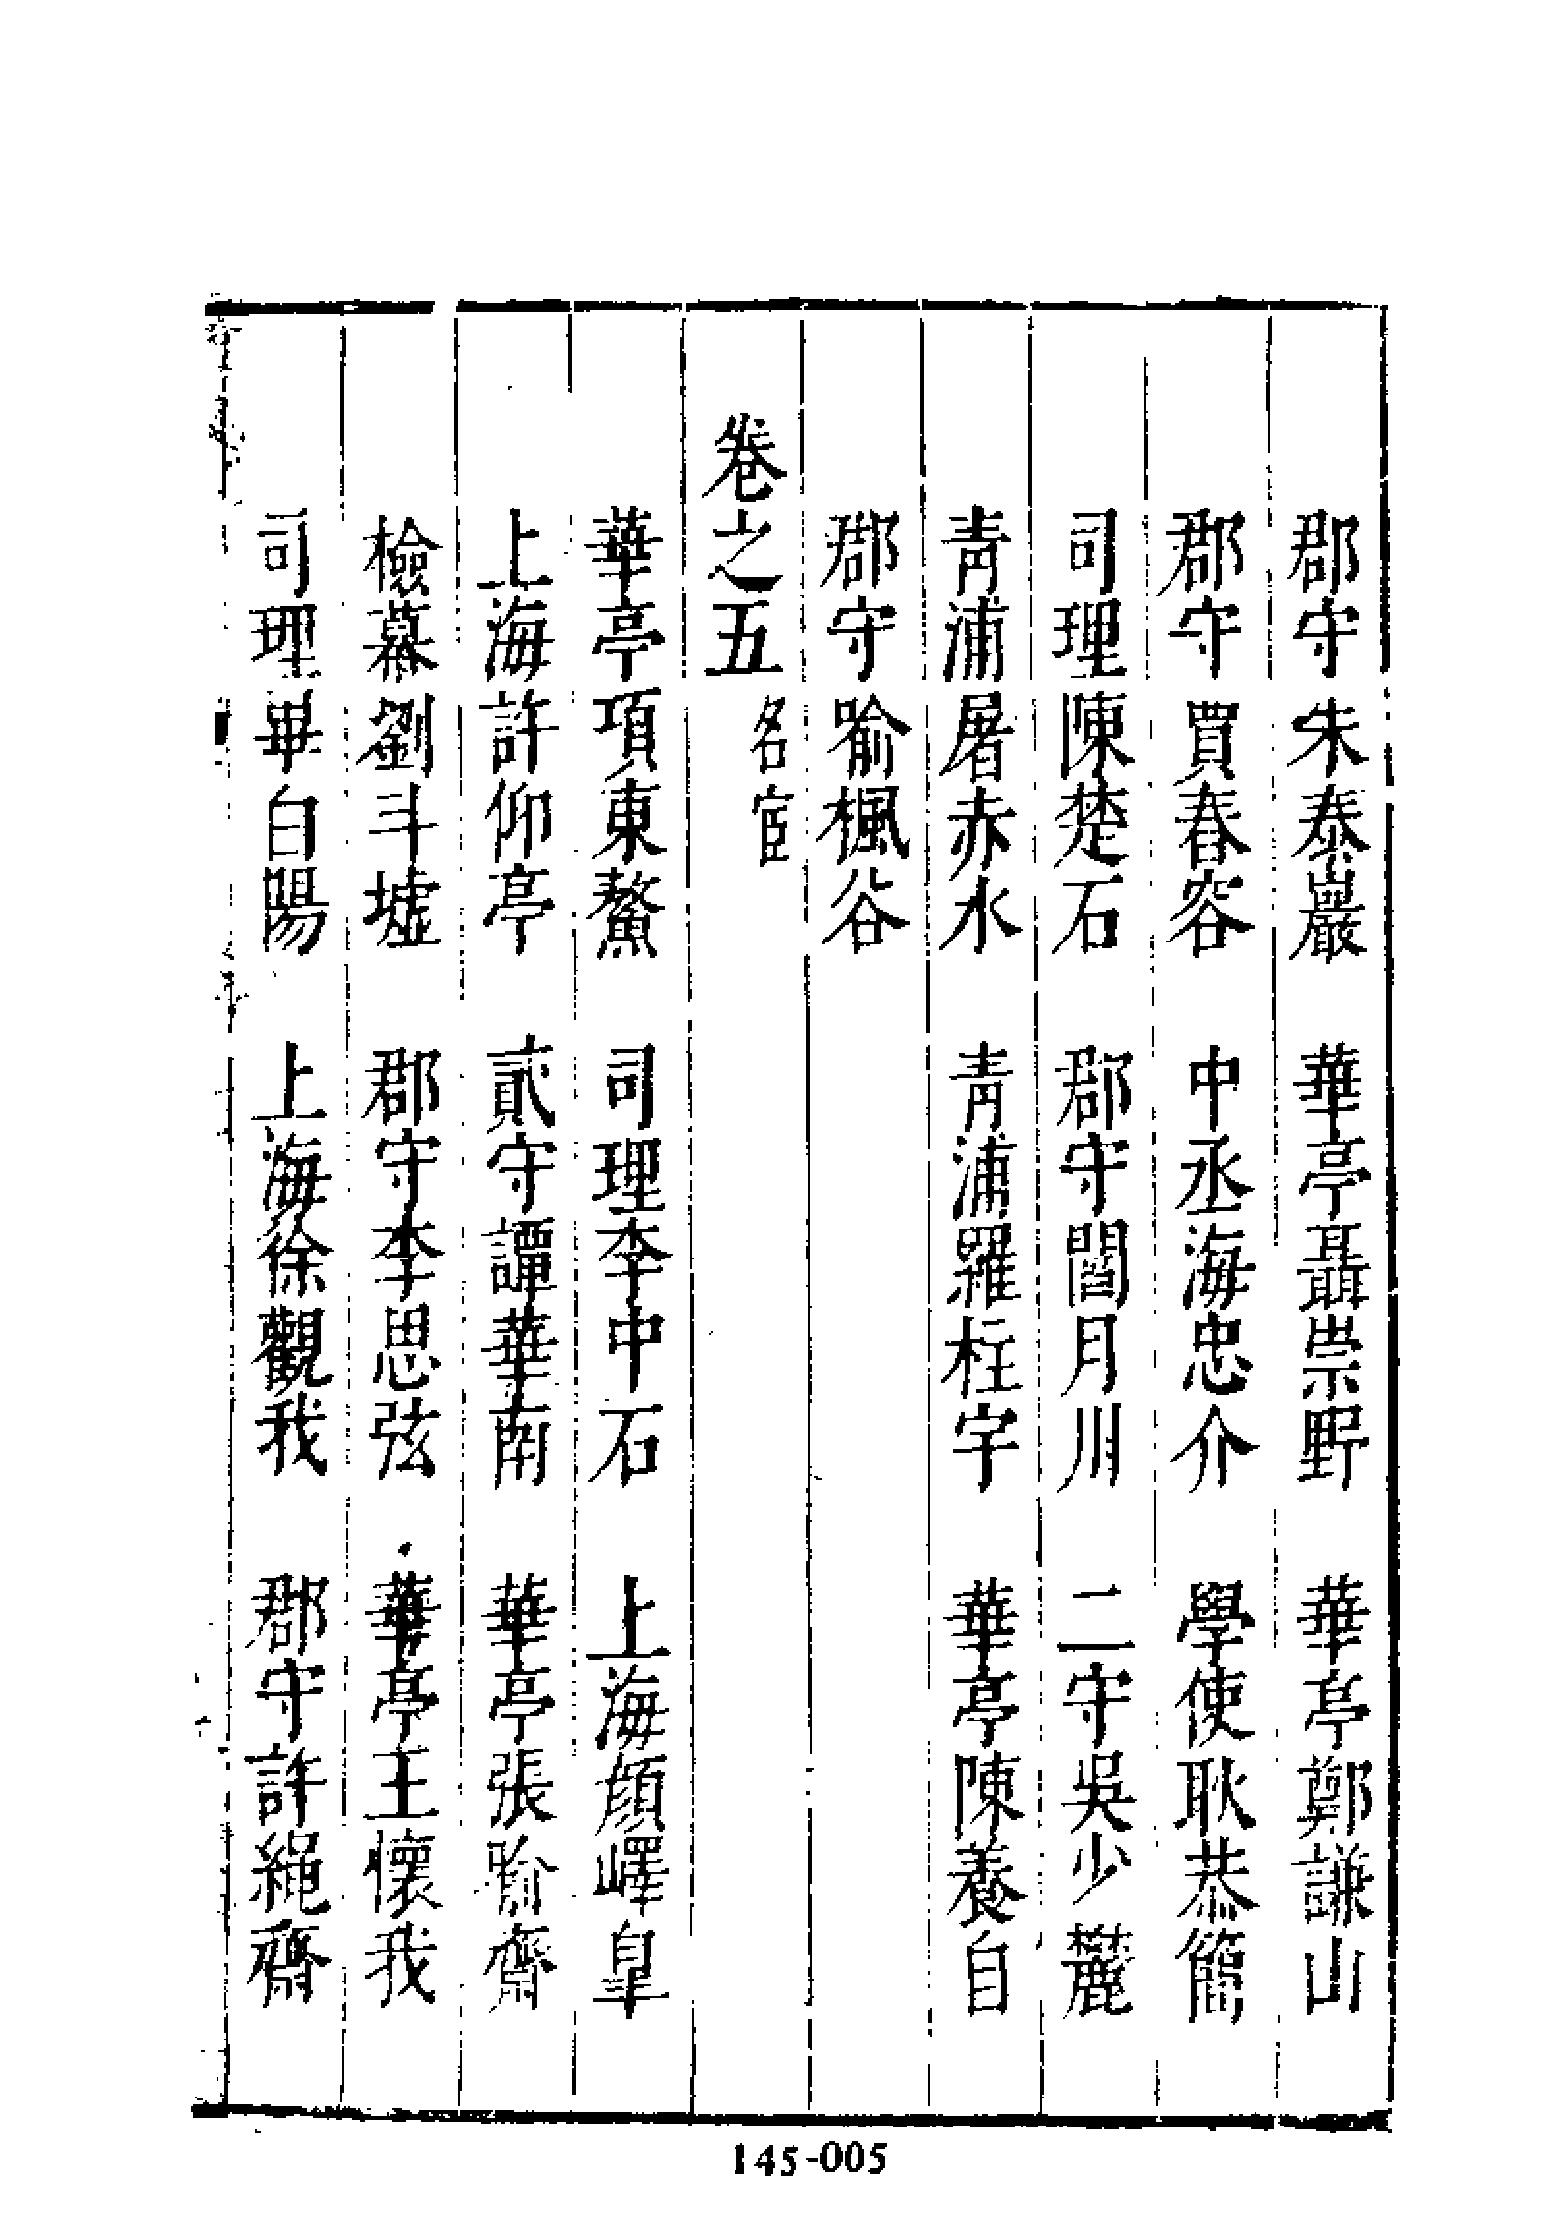 郡守朱泰巖　華亭聶崇野　華亭鄭謙山
郡守賈春容　中丞海忠介　學使耿恭簡
司理陳楚石　郡守閻月川　二守吳少麓
青浦屠赤水　青浦羅柱宇　華亭陳養自
郡守喻楓谷
卷之五　名宦
華亭項東鰲　司理李中石　上海顏嶧皇
上海許仰亭　貳守譚華南　華亭張瑜齋
檢幕劉斗墟　郡守李思弦　華亭王懷我
司理畢白陽　上海徐觀我　郡守許繩齋
145-005